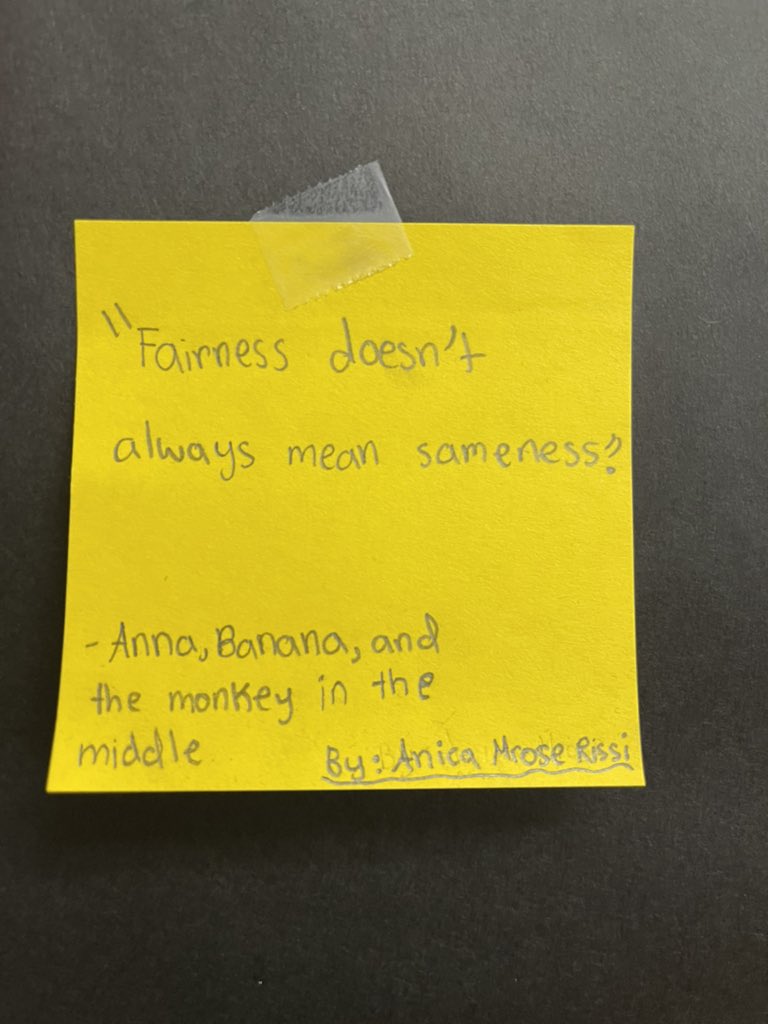 "Fairness doesn't
always mean sameness."
- Anna, Banana, and
the monkey in the
middle
By: Anica Mrose Rissi